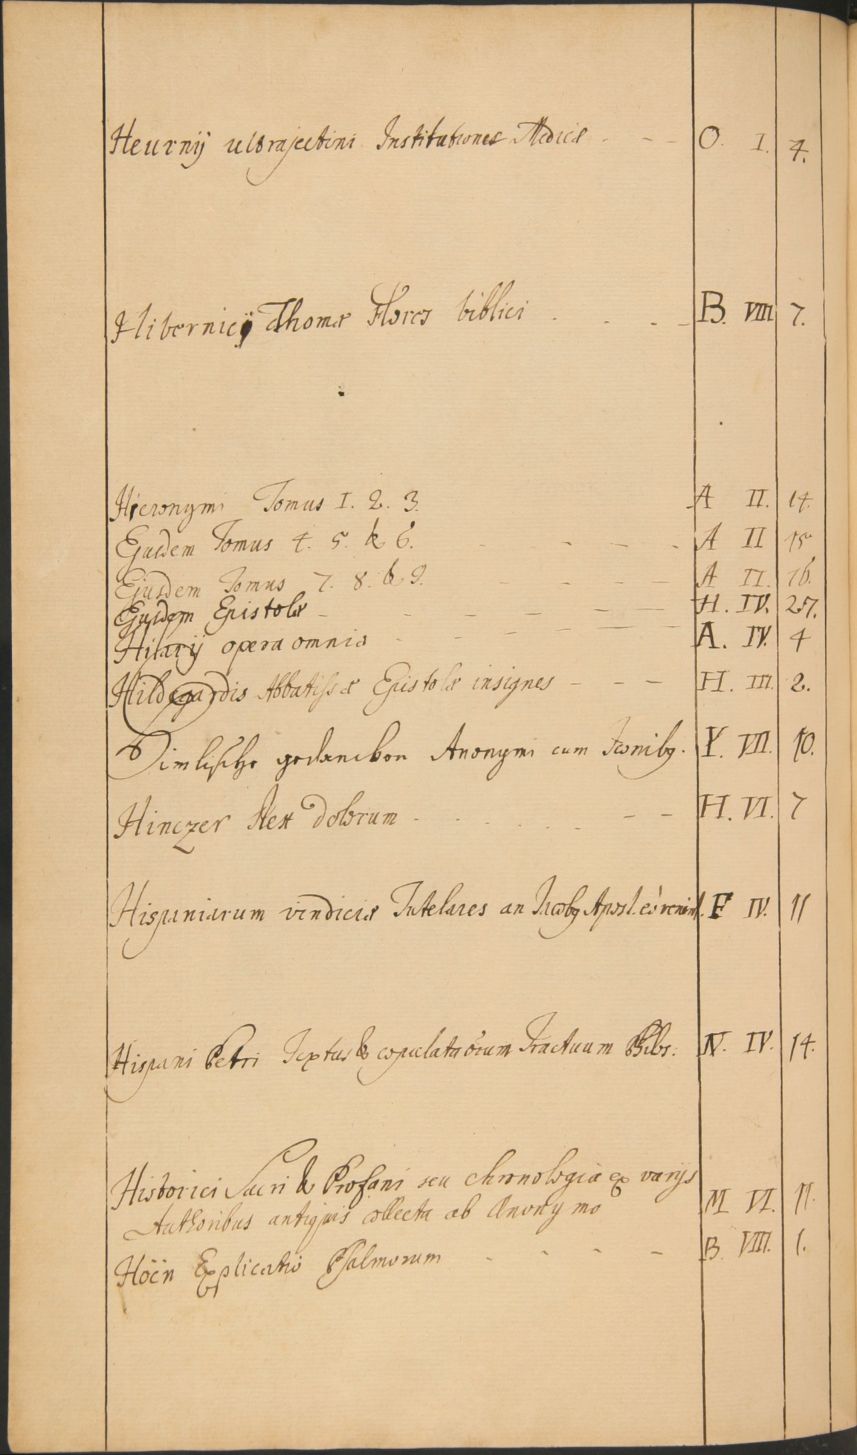 Heurnij ultrajectini Institutiones Medicæ - - - O. I. 4.
Hibernicij Thomæ Flores biblici . . . - B. VIII 7.
Hieronymi Tomus 1. 2. 3. A II. 14.
Ejusdem Tomus 4. 5. & 6. - - - - A II 15
Ejusdem Tomus 7. 8. & 9. - - - - A II. 16.
Ejusdem Epistolæ - - - - - H. IV. 27.
Hilarij opera omnia - - - - - A. IV. 4
Hildegardis Abbatissæ Epistolæ insignes - - - H. III. 2.
Himlische gedancken Anonymi cum Iconibq. Y. VIII. 10.
Hinczer Rex dolorum - . . . . - - H. VI. 7
Hispaniarum vindiciæ Tutelares an Jacobq Apost. eò venerit. F IV. 11
Hispani Petri Textus & copulata Tractuum N. IV. 14.
Historici Sacri & Profani seu chronologia ex varijs
Authoribus antiquis collecta ab Anonymo M VI. 11.
Höin Explicatio Psalmorum - - - - B. VIII. 1.